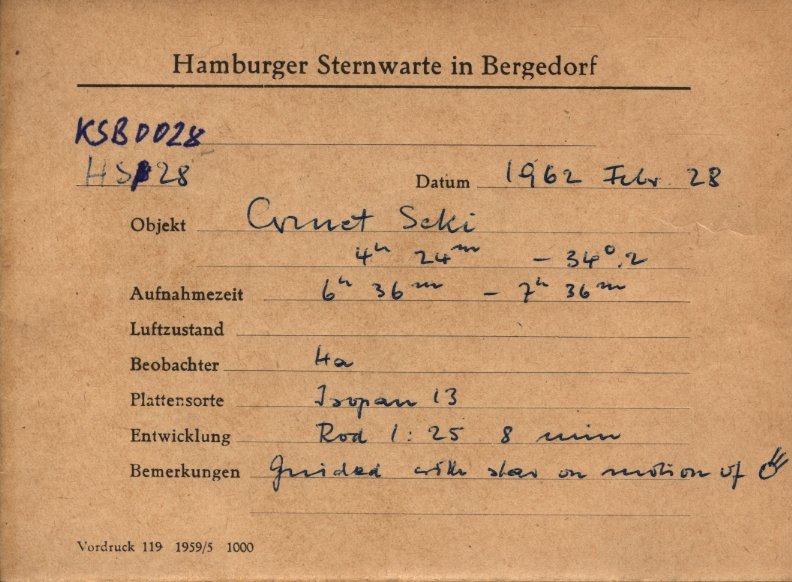 Hamburger Sternwarte in Bergedorf
KSB0028
HSB28
Datum 1962 Febr. 28
Objekt Comet Seki
4h 24m - 34°.2
Aufnahmezeit 6h 36m - 7h 36m
Luftzustand
Beobachter Ha
Plattensorte Isopan 13
Entwicklung Rod 1:25 8 min
Bemerkungen Guided with star on motion of ☄
Vordruck 119 1959/5 1000